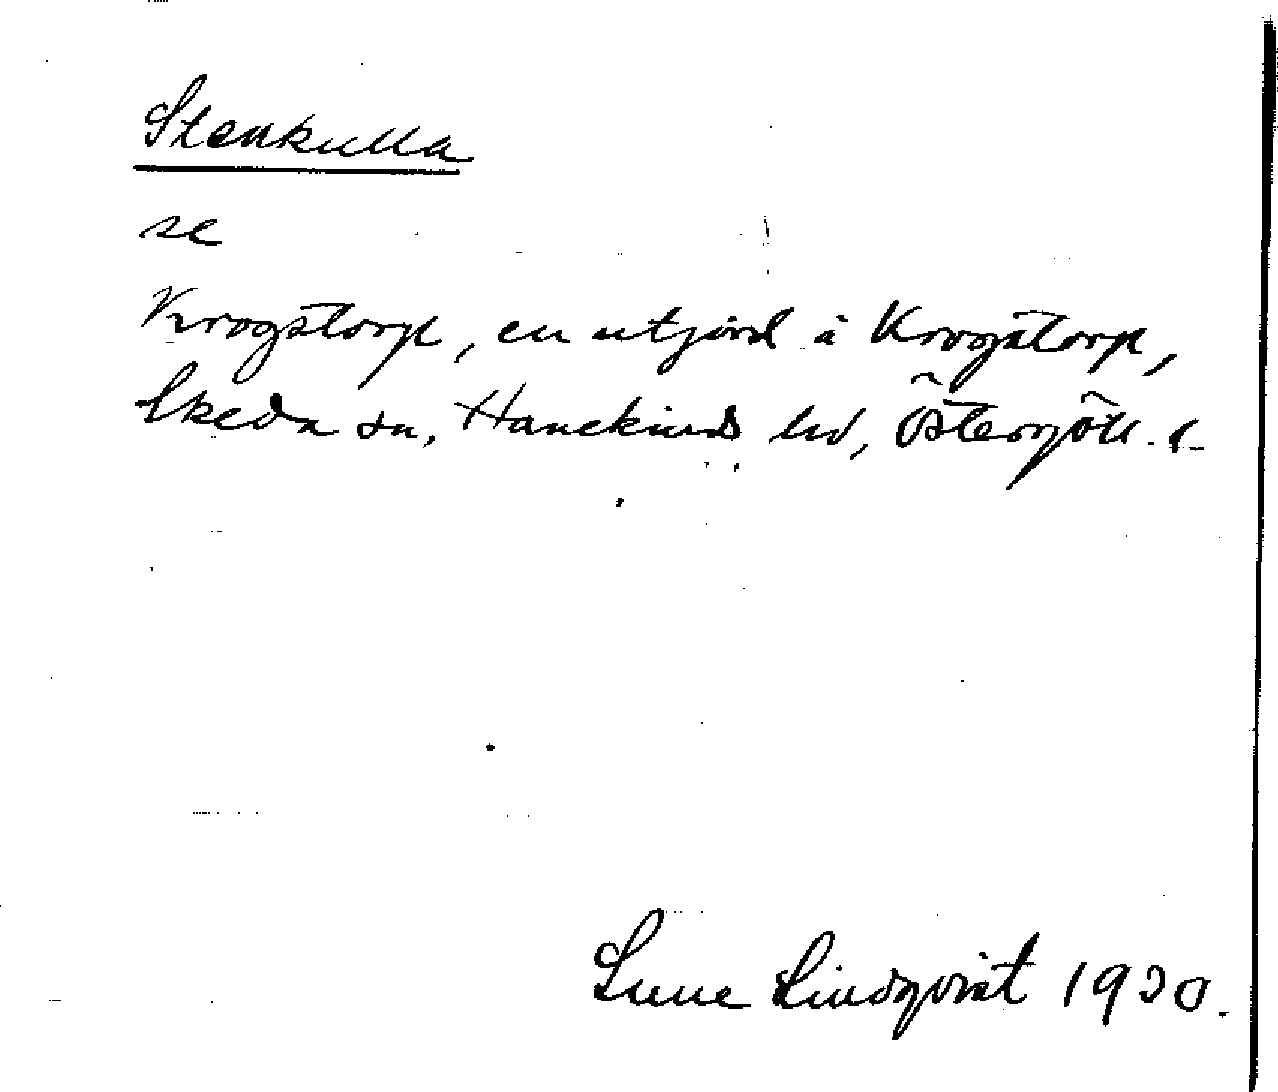 Stenkulla
se
Krogstorp, en utjord i Krogstorp,
Skeda sn, Hanekinds hd, Östergötl. l.
Sune Lindqvist 1920.